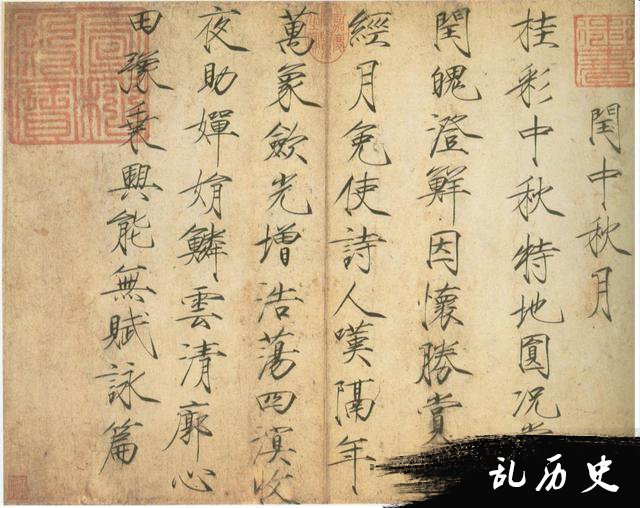 閏中秋月
桂彩中秋特地圓况
閏魄澄鮮因懷勝賞
經月免使詩人嘆隔年
萬象歛光增浩蕩四溟收
夜助嬋娟鱗雲清廓心
田豫乘興能無賦詠篇
乱历史